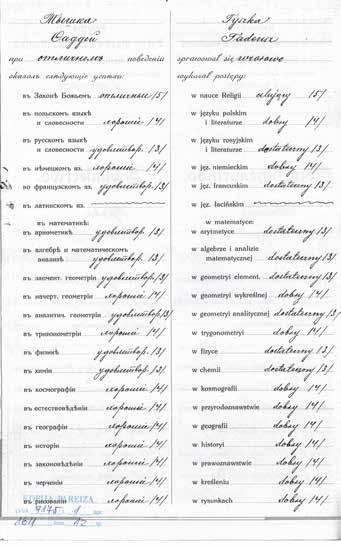 Тышка
Фаддей
при отличномъ поведеніи
оказалъ слѣдующіе успѣхи:
въ Законѣ Божьемъ отличные /5/
въ польскомъ языкѣ
и словесности хорошіе /4/
въ русскомъ языкѣ
и словесности удовлетвор. /3/
въ нѣмецкомъ яз. хорошіе /4/
во французскомъ яз. удовлетвор. /3/
въ латинскомъ яз.
въ математикѣ:
въ ариѳметикѣ удовлетвор. /3/
въ алгебрѣ и математическомъ
анализѣ удовлетвор. /3/
въ элемент. геометріи удовлетвор. /3/
въ начерт. геометріи хорошіе /4/
въ аналитич. геометріи удовлетвор. /3/
въ тригонометріи хорошіе /4/
въ физикѣ удовлетвор. /3/
въ химіи удовлетвор. /3/
въ космографіи хорошіе /4/
въ естествовѣдѣніи хорошіе /4/
въ географіи хорошіе /4/
въ исторіи хорошіе /4/
въ законовѣдѣніи хорошіе /4/
въ черченіи хорошіе /4/
въ рисованіи хорошіе /4/
KOPIJA PAREIZA
LVVA 7175 f. 1
1611 12
Tyszka
Tadeusz
sprawował się wzorowo
wykazał postępy:
w nauce Religii celujący /5/
w języku polskim
i literaturze dobry /4/
w języku rosyjskim
i literaturze dostateczny /3/
w jęz. niemieckim dobry /4/
w jęz. francuskim dostateczny /3/
w jęz. łacińskim
w matematyce:
w arytmetyce dostateczny /3/
w algebrze i analizie
matematycznej dostateczny /3/
w geometryi element. dostateczny /3/
w geometryi wykreślnej dobry /4/
w geometryi analitycznej dostateczny /3/
w trygonometryi dobry /4/
w fizyce dostateczny /3/
w chemii dostateczny /3/
w kosmografii dobry /4/
w przyrodoznawstwie dobry /4/
w geografii dobry /4/
w historyi dobry /4/
w prawoznawstwie dobry /4/
w kreśleniu dobry /4/
w rysunkach dobry /4/